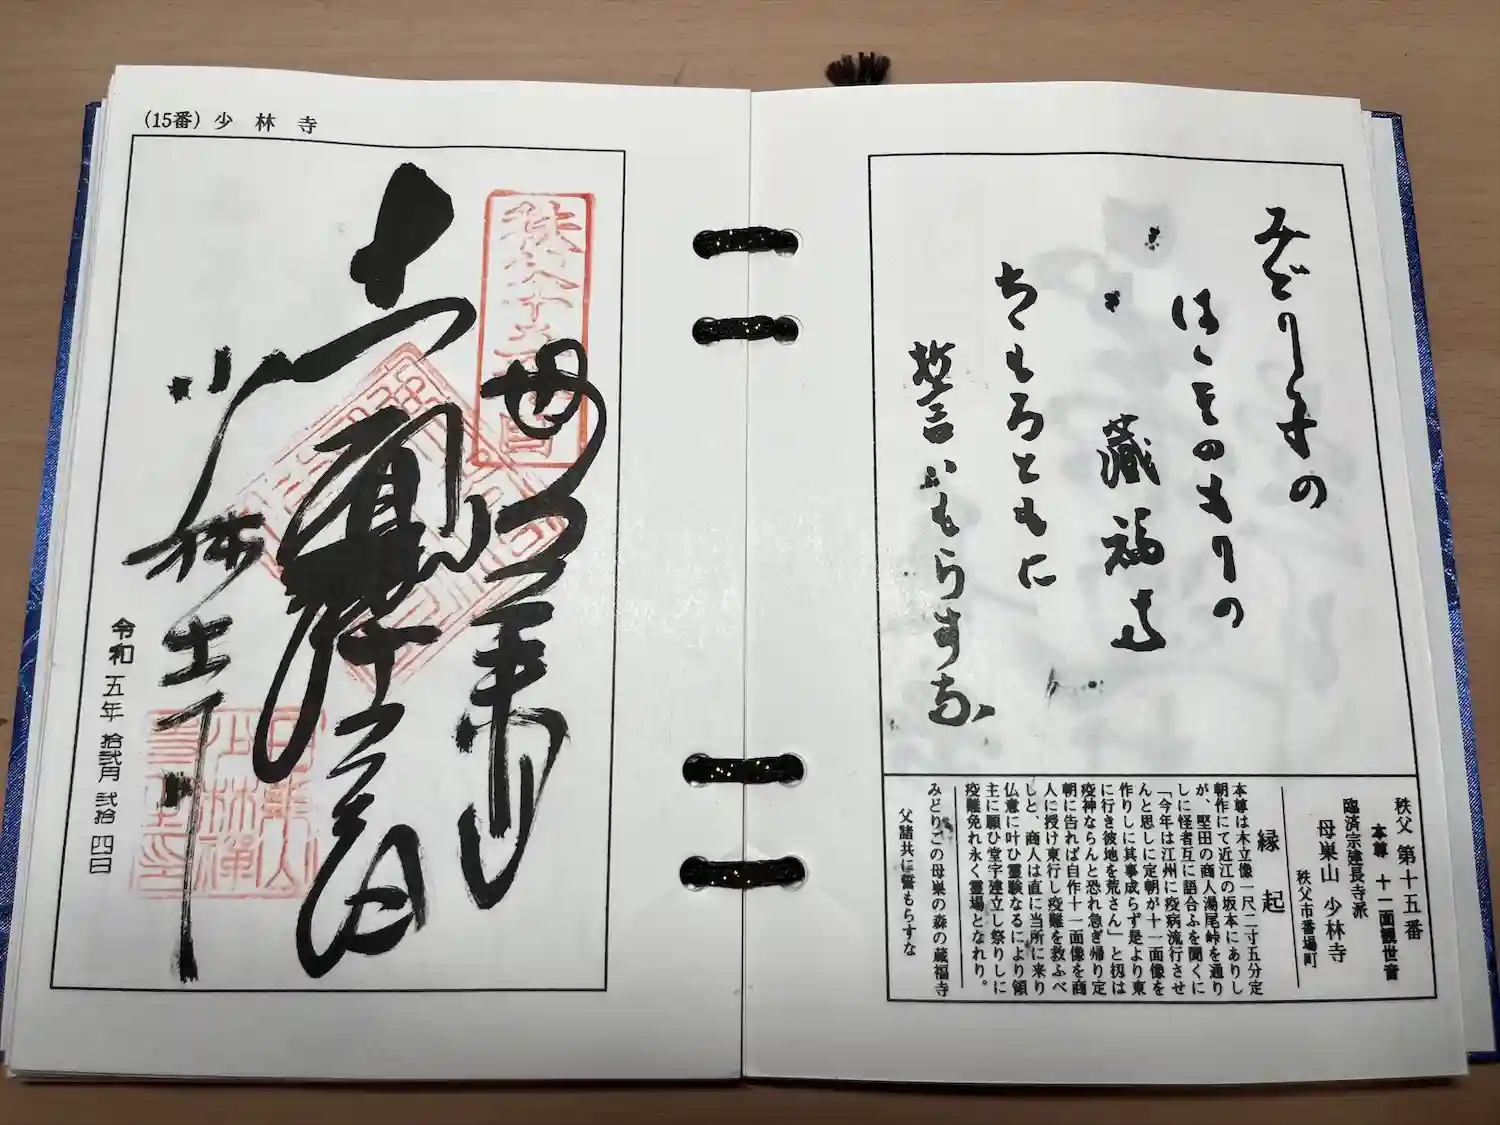 (15番) 少林寺
秩父十五番
十一面観世音
少林寺
令和五年拾弐月弐拾四日
みどり子の
はゝその
もりの
蔵福寺
ちゝもろともに
誓いもらすな
秩父 第十五番
本尊 十一面観世音
臨済宗建長寺派
母巣山 少林寺
秩父市番場町
縁起
本尊は木立像一尺二寸五分定
朝作にて近江の坂本にありし
が、堅田の商人湯尾峠を通り
しに怪者互に語合ふを聞くに
「今年は江州に疫病流行させ
んと思しに定朝が十一面像を
作りしに其事成らず是より東
に行き彼地を荒さん」と扨は
疫神ならんと恐れ急ぎ帰り定
朝に告れば自作十一面像を商
人に授け東行し疫難を救ふべ
しと、商人は直に当所に来り
仏意に叶ひ霊験なるにより領
主に願ひ堂宇建立し祭りしに
疫難免れ永く霊場となれり。
みどりごの母巣の森の蔵福寺
父諸共に誓もらすな